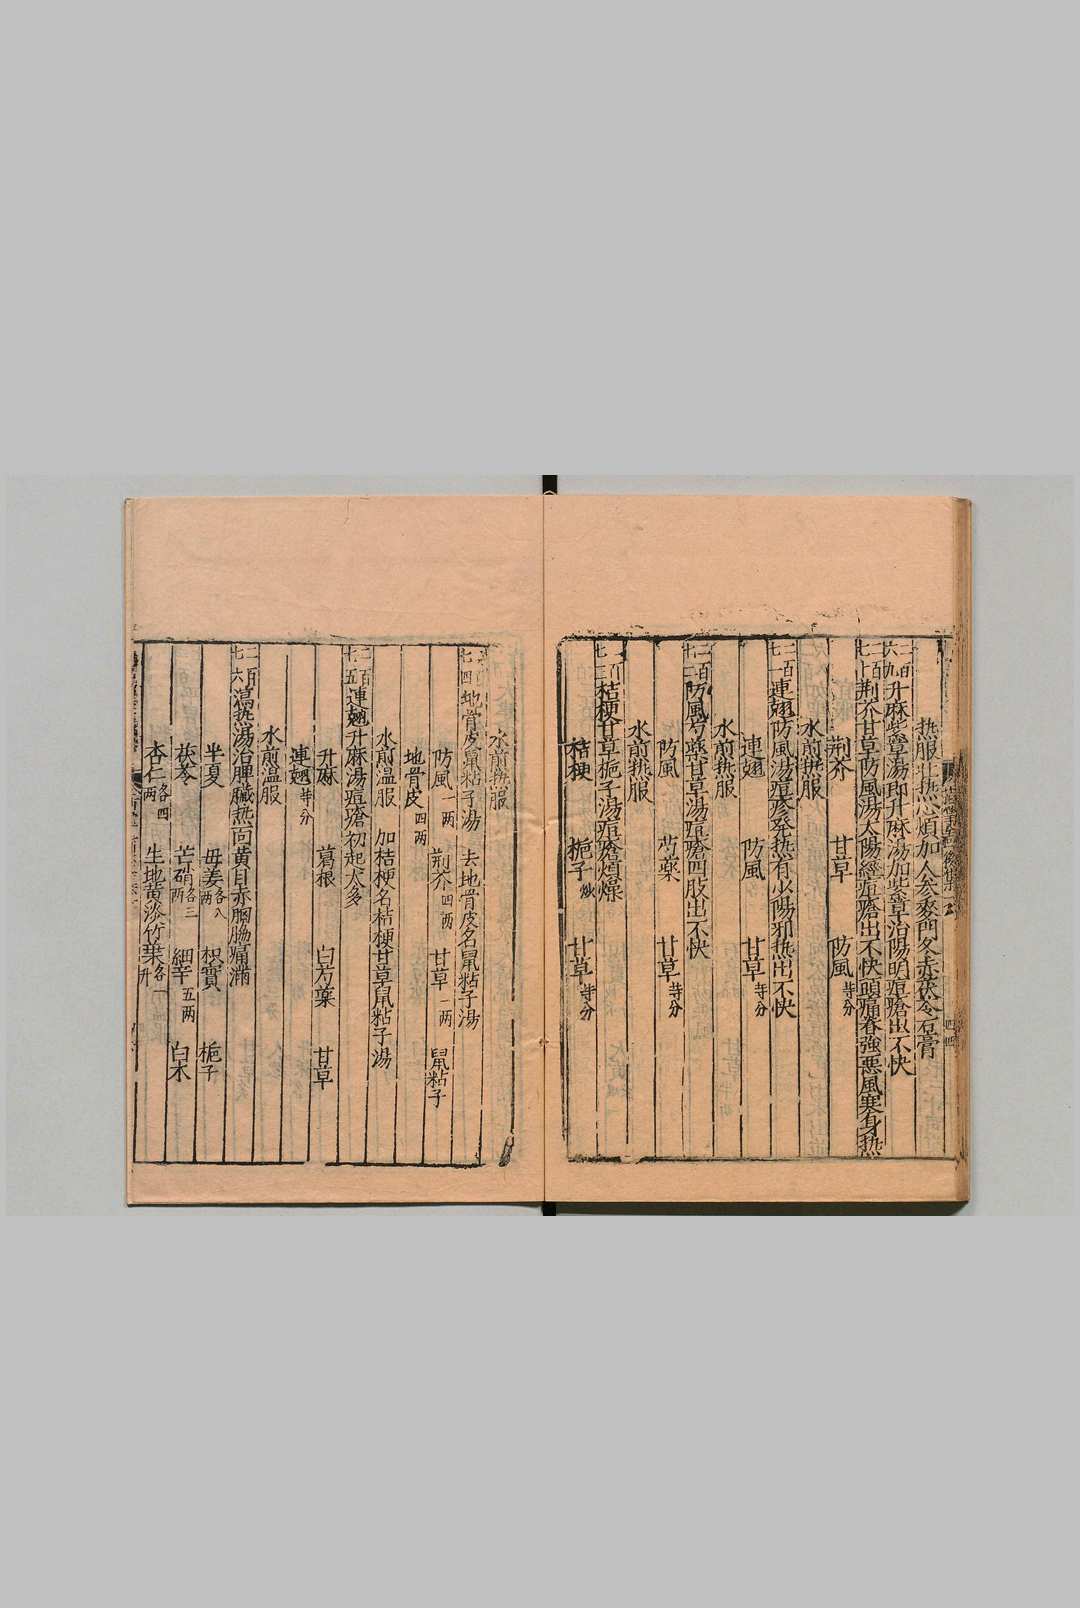 热服壮热心煩加人参麥門冬赤茯苓石膏
二百六九升麻紫草湯即升麻湯加紫草治陽明痘瘡出不快
二百七十荆芥甘草防風湯太陽經痘瘡出不快頭痛脊強悪風寒身热
荆芥 甘草 防風等分
水煎热服
二百七一連翹防風湯痘疹発热有少陽邪热出不快
連翹 防風 甘草等分
水煎热服
二百七二防風芍藥甘草湯痘瘡四肢出不快
防風 芍藥 甘草等分
水煎热服
二百七三桔梗甘草栀子湯痘瘡煩燥
桔梗 栀子炒 甘草等分
水煎热服
七四地骨皮鼠粘子湯 去地骨皮名鼠粘子湯
防風一两 荆芥四两 甘草一两 鼠粘子
地骨皮四两
水煎温服 加桔梗名桔梗甘草鼠粘子湯
二百七五連翹升麻湯痘瘡初起太多
升麻 葛根 白芍藥 甘草
連翹等分
水煎温服
二百七六瀉热湯治脾臓热面黄目赤胸脇痛滿
半夏 毋姜各八两 枳實 栀子
茯苓 芒硝各三两 細辛五两 白术
杏仁各四两 生地黄淡竹葉各一升